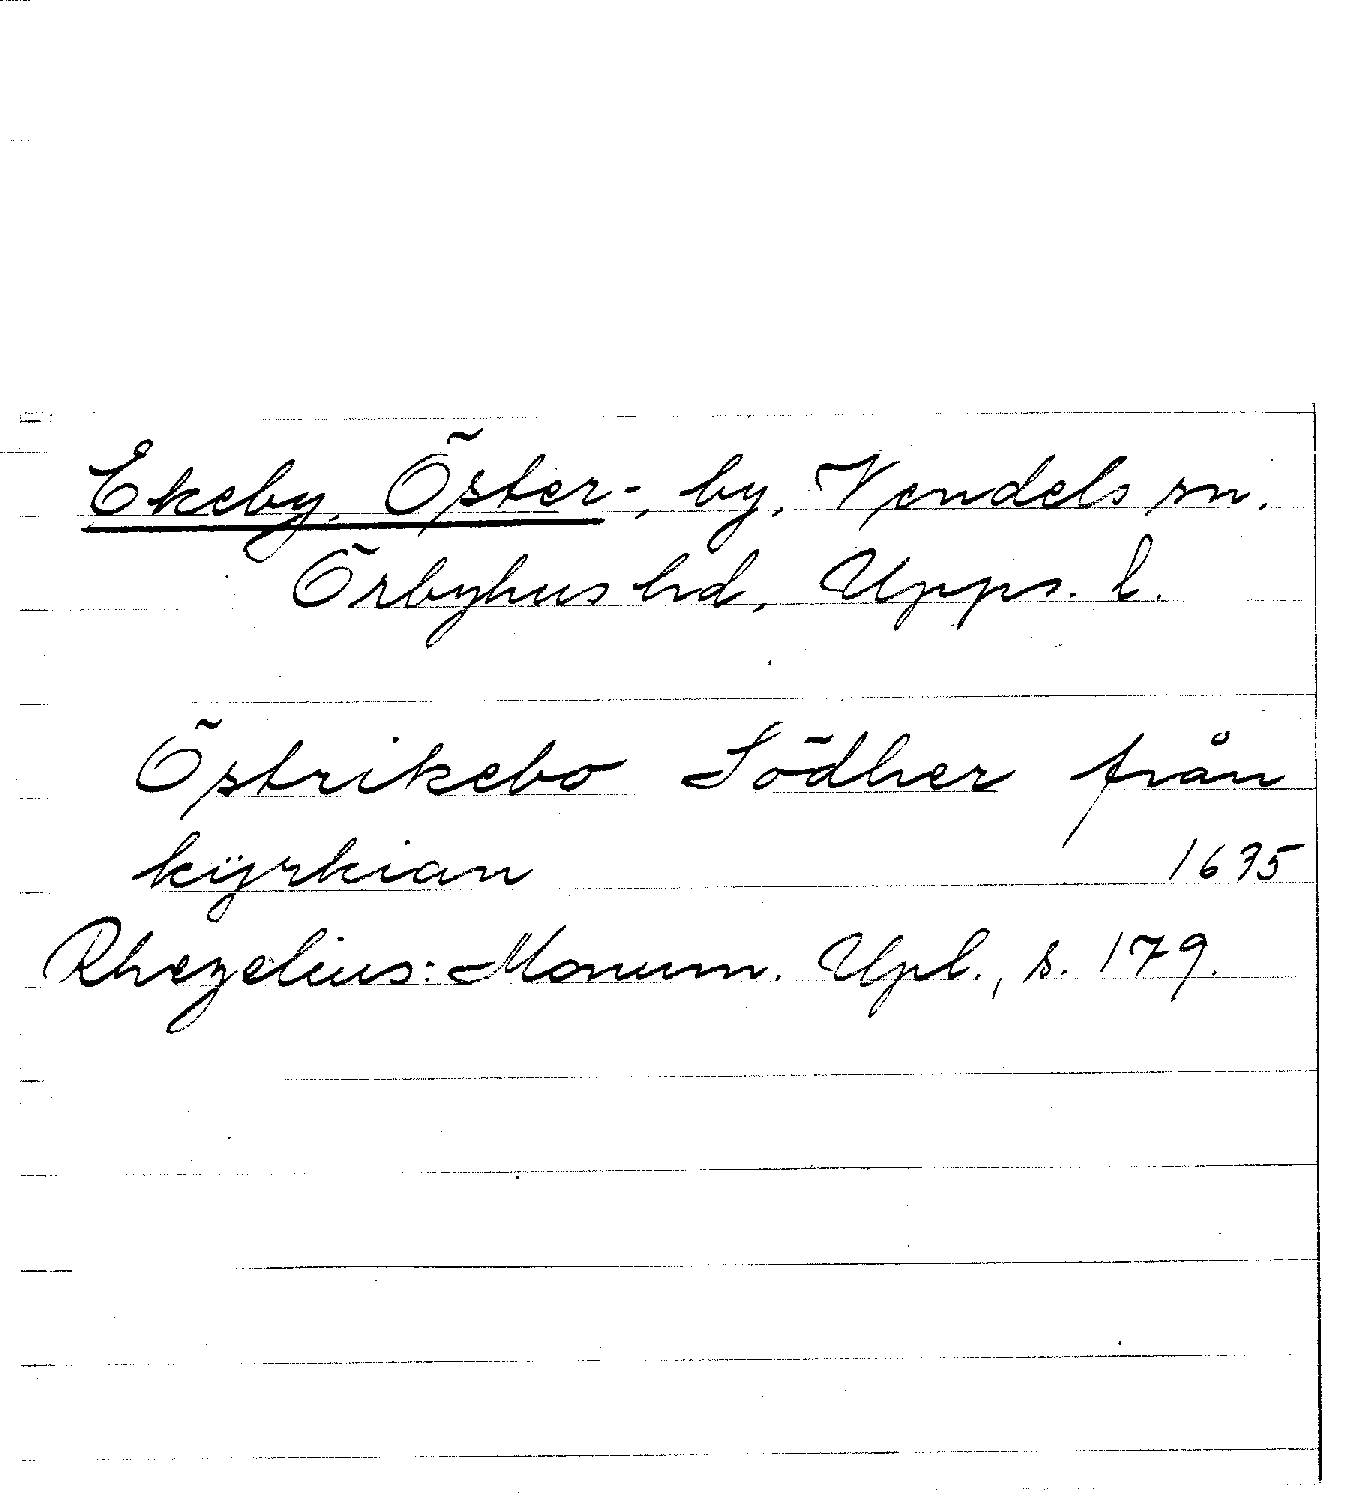 Ekeby, Öster-, by, Vendels sn.
Örbyhus hd, Upps. l.
Östrikebo Södher från
kÿrkian 1635
Rhezelius: Monum. Upl., s. 179.